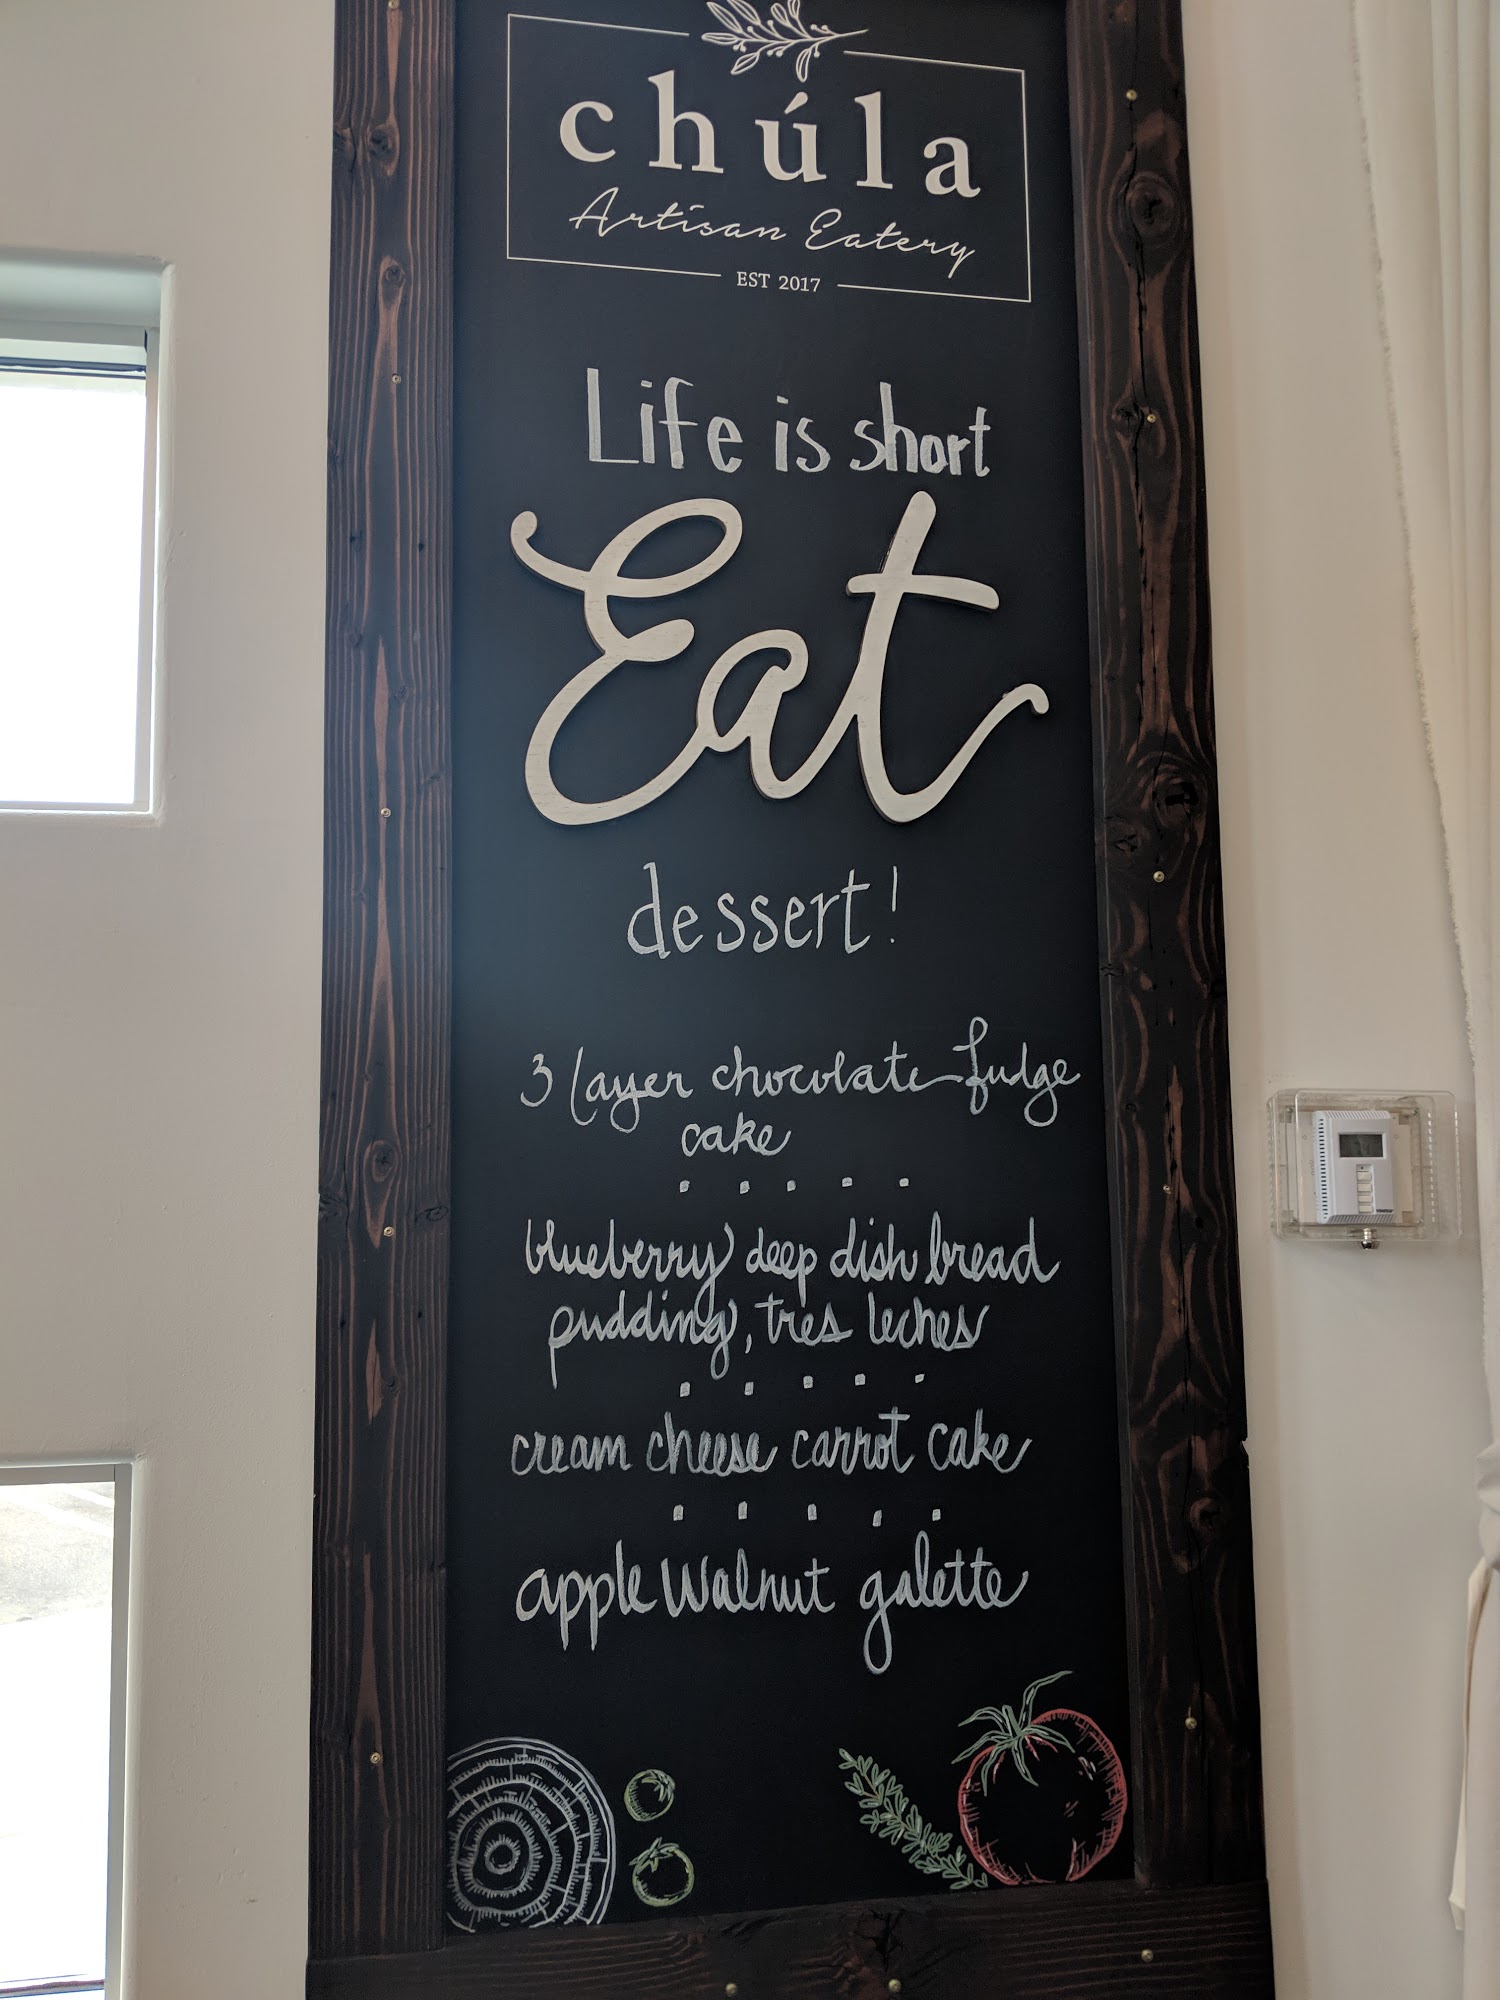 chúla
Artisan Eatery
EST 2017
Life is short
Eat
dessert!
3 layer chocolate fudge
cake
blueberry deep dish bread
pudding, tres leches
cream cheese carrot cake
apple walnut galette